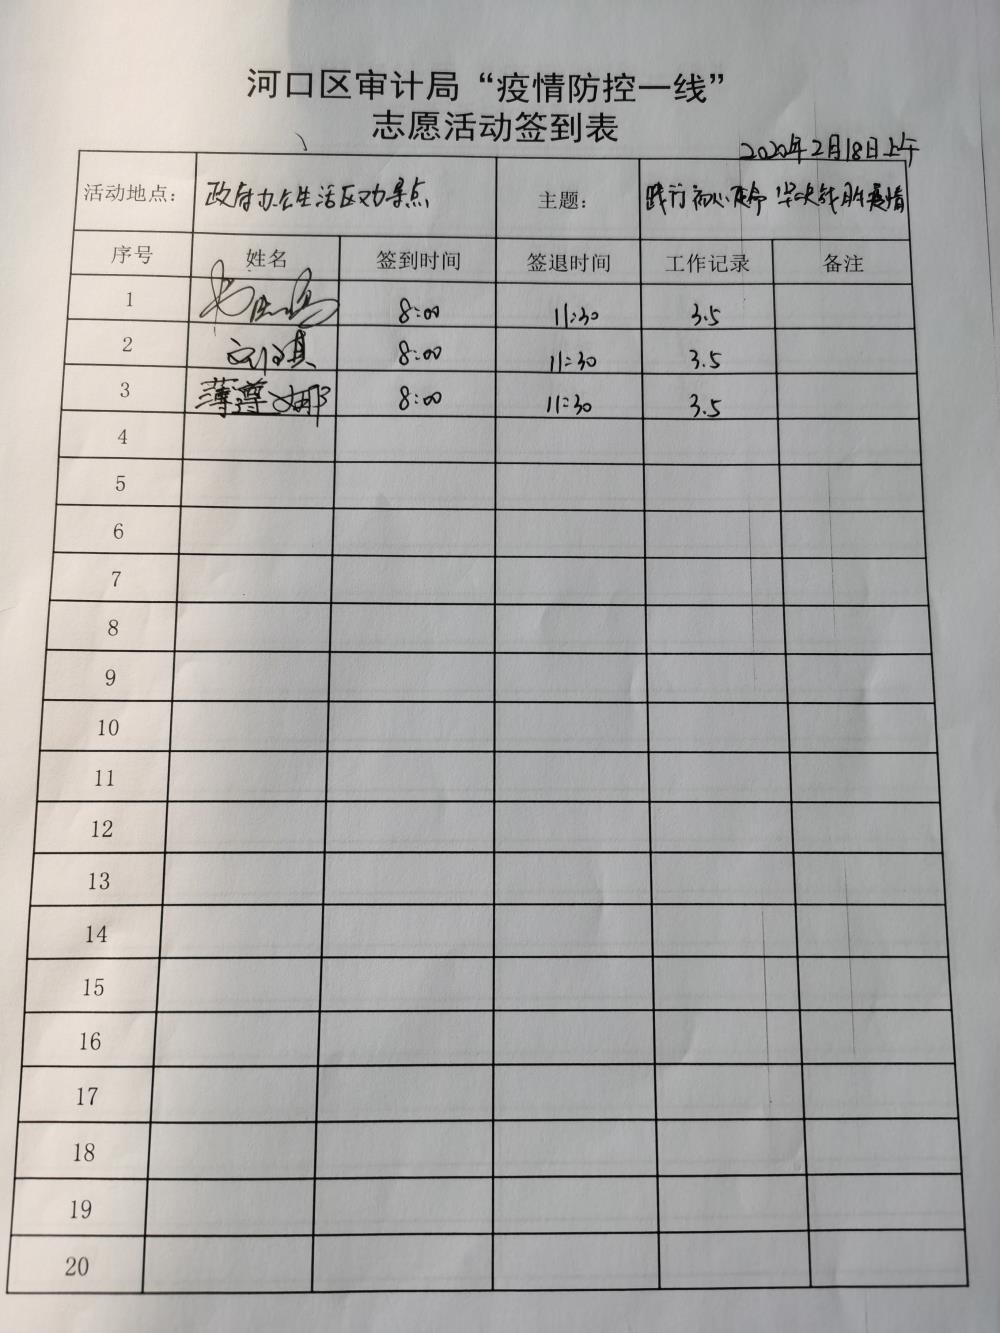 河口区审计局“疫情防控一线”
志愿活动签到表
2020年2月18日上午
活动地点： 政府办公生活区劝导点 主题： 践行初心使命 坚决战胜疫情
序号 姓名 签到时间 签退时间 工作记录 备注
1 8:00 11:30 3.5
2 8:00 11:30 3.5
3 薄尊娜 8:00 11:30 3.5
4
5
6
7
8
9
10
11
12
13
14
15
16
17
18
19
20